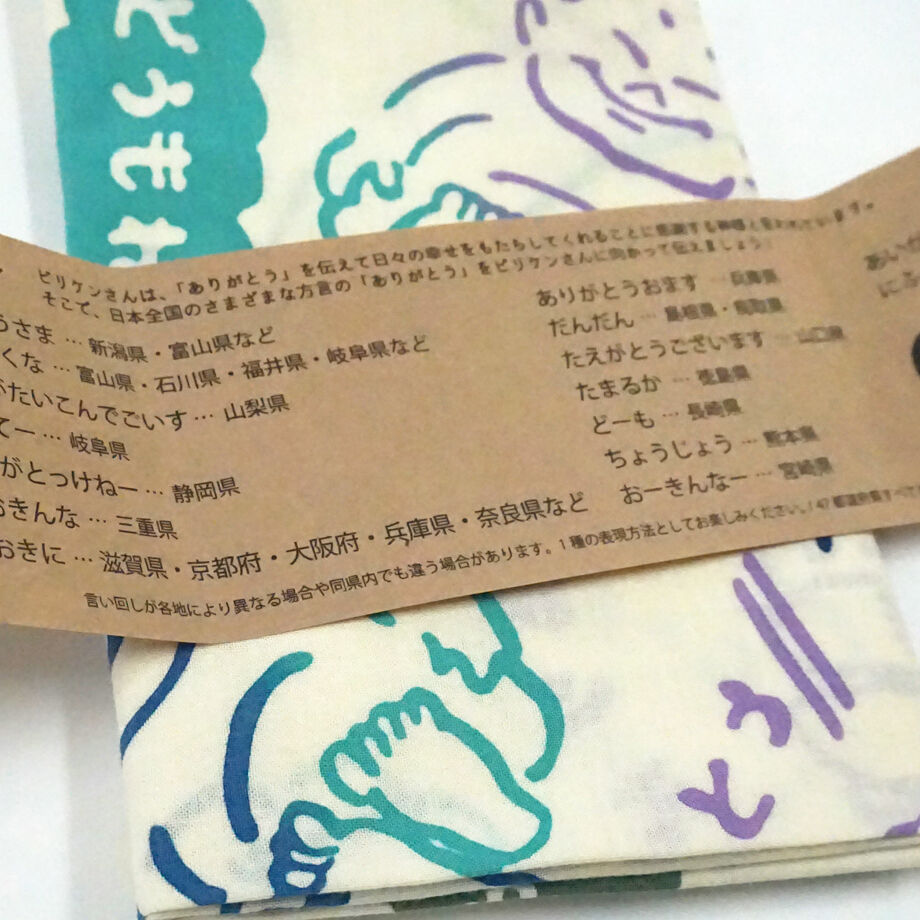 どうもわ
ビリケンさんは、「ありがとう」を伝えて日々の幸せをもたらしてくれることに感謝する神様と言われています。
そこで、日本全国のさまざまな方言の「ありがとう」をビリケンさんに向かって伝えましょう!
うさま … 新潟県・富山県など
くな … 富山県・石川県・福井県・岐阜県など
がたいこんでごいす … 山梨県
てー … 岐阜県
がとっけねー … 静岡県
おきんな … 三重県
おきに … 滋賀県・京都府・大阪府・兵庫県・奈良県など
ありがとうおます … 兵庫県
だんだん … 島根県・鳥取県
たえがとうございます … 山口県
たまるか … 徳島県
どーも … 長崎県
ちょうじょう … 熊本県
おーきんなー … 宮崎県
あい
に
言い回しが各地により異なる場合や同県内でも違う場合があります。1種の表現方法としてお楽しみください。/47都道府県すべて
とう